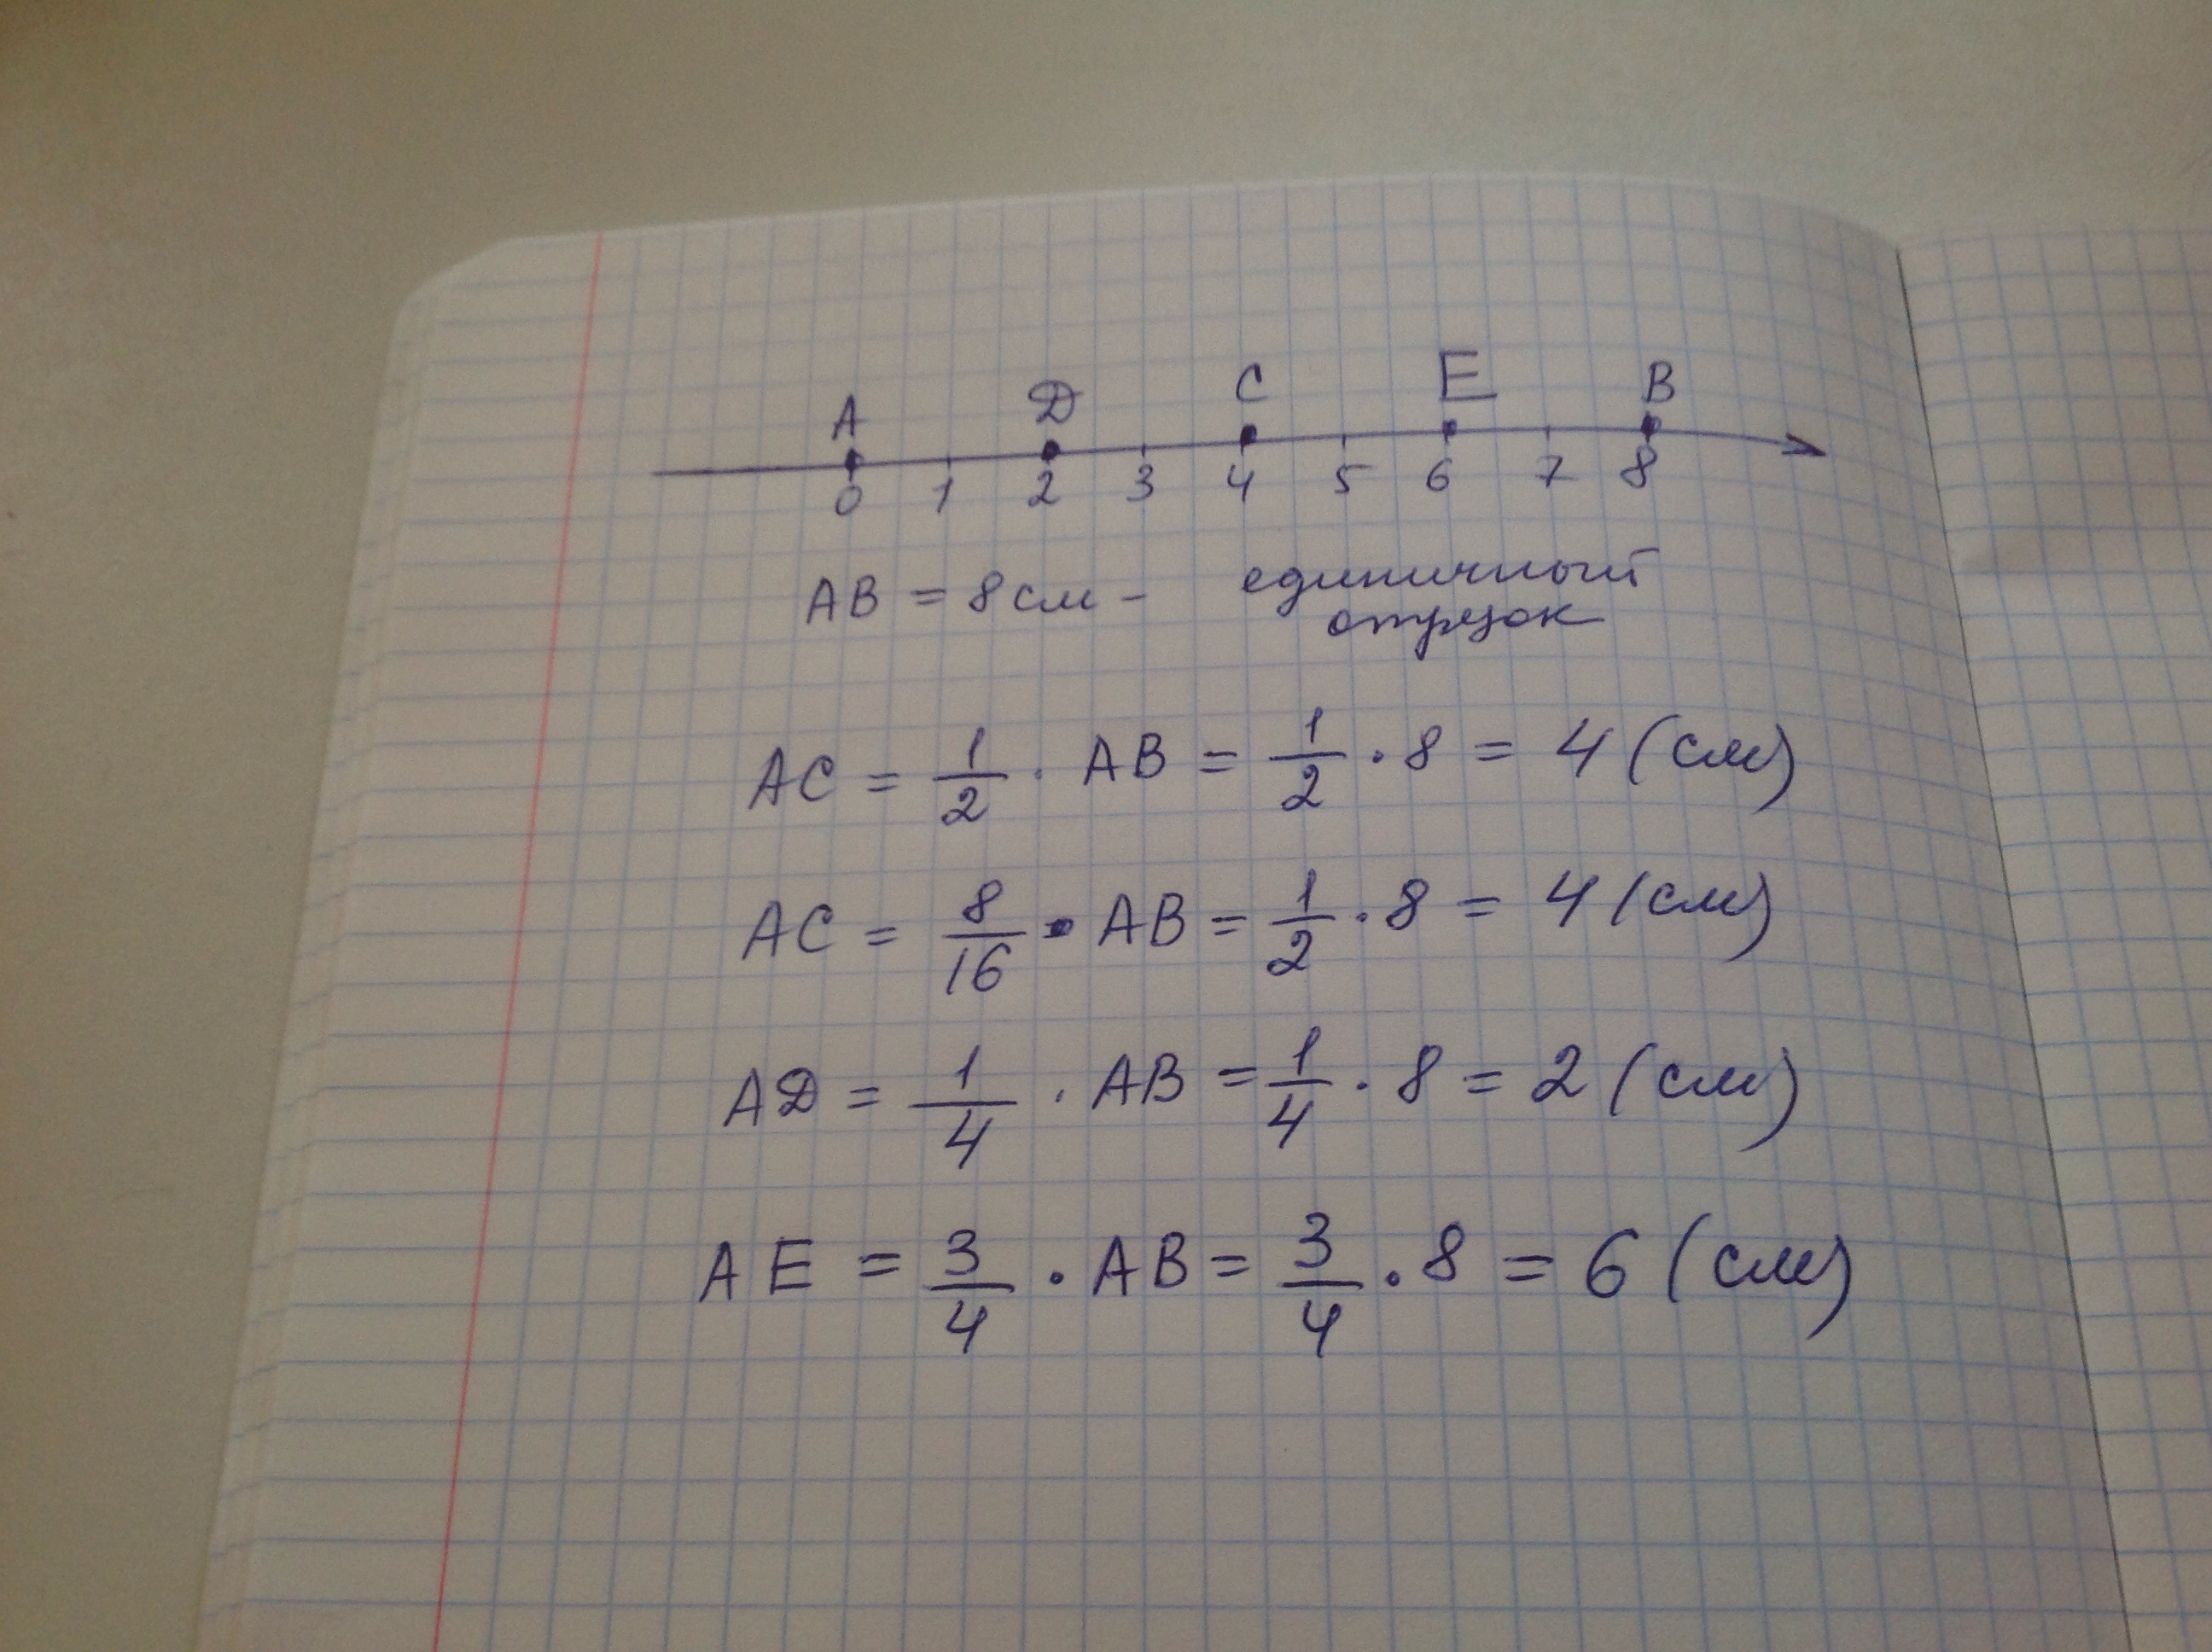 A D C E B
0 1 2 3 4 5 6 7 8
AB = 8 см - единичный
отрезок
AC = 1/2 · AB = 1/2 · 8 = 4 (см)
AC = 8/16 · AB = 1/2 · 8 = 4 (см)
AD = 1/4 · AB = 1/4 · 8 = 2 (см)
AE = 3/4 · AB = 3/4 · 8 = 6 (см)